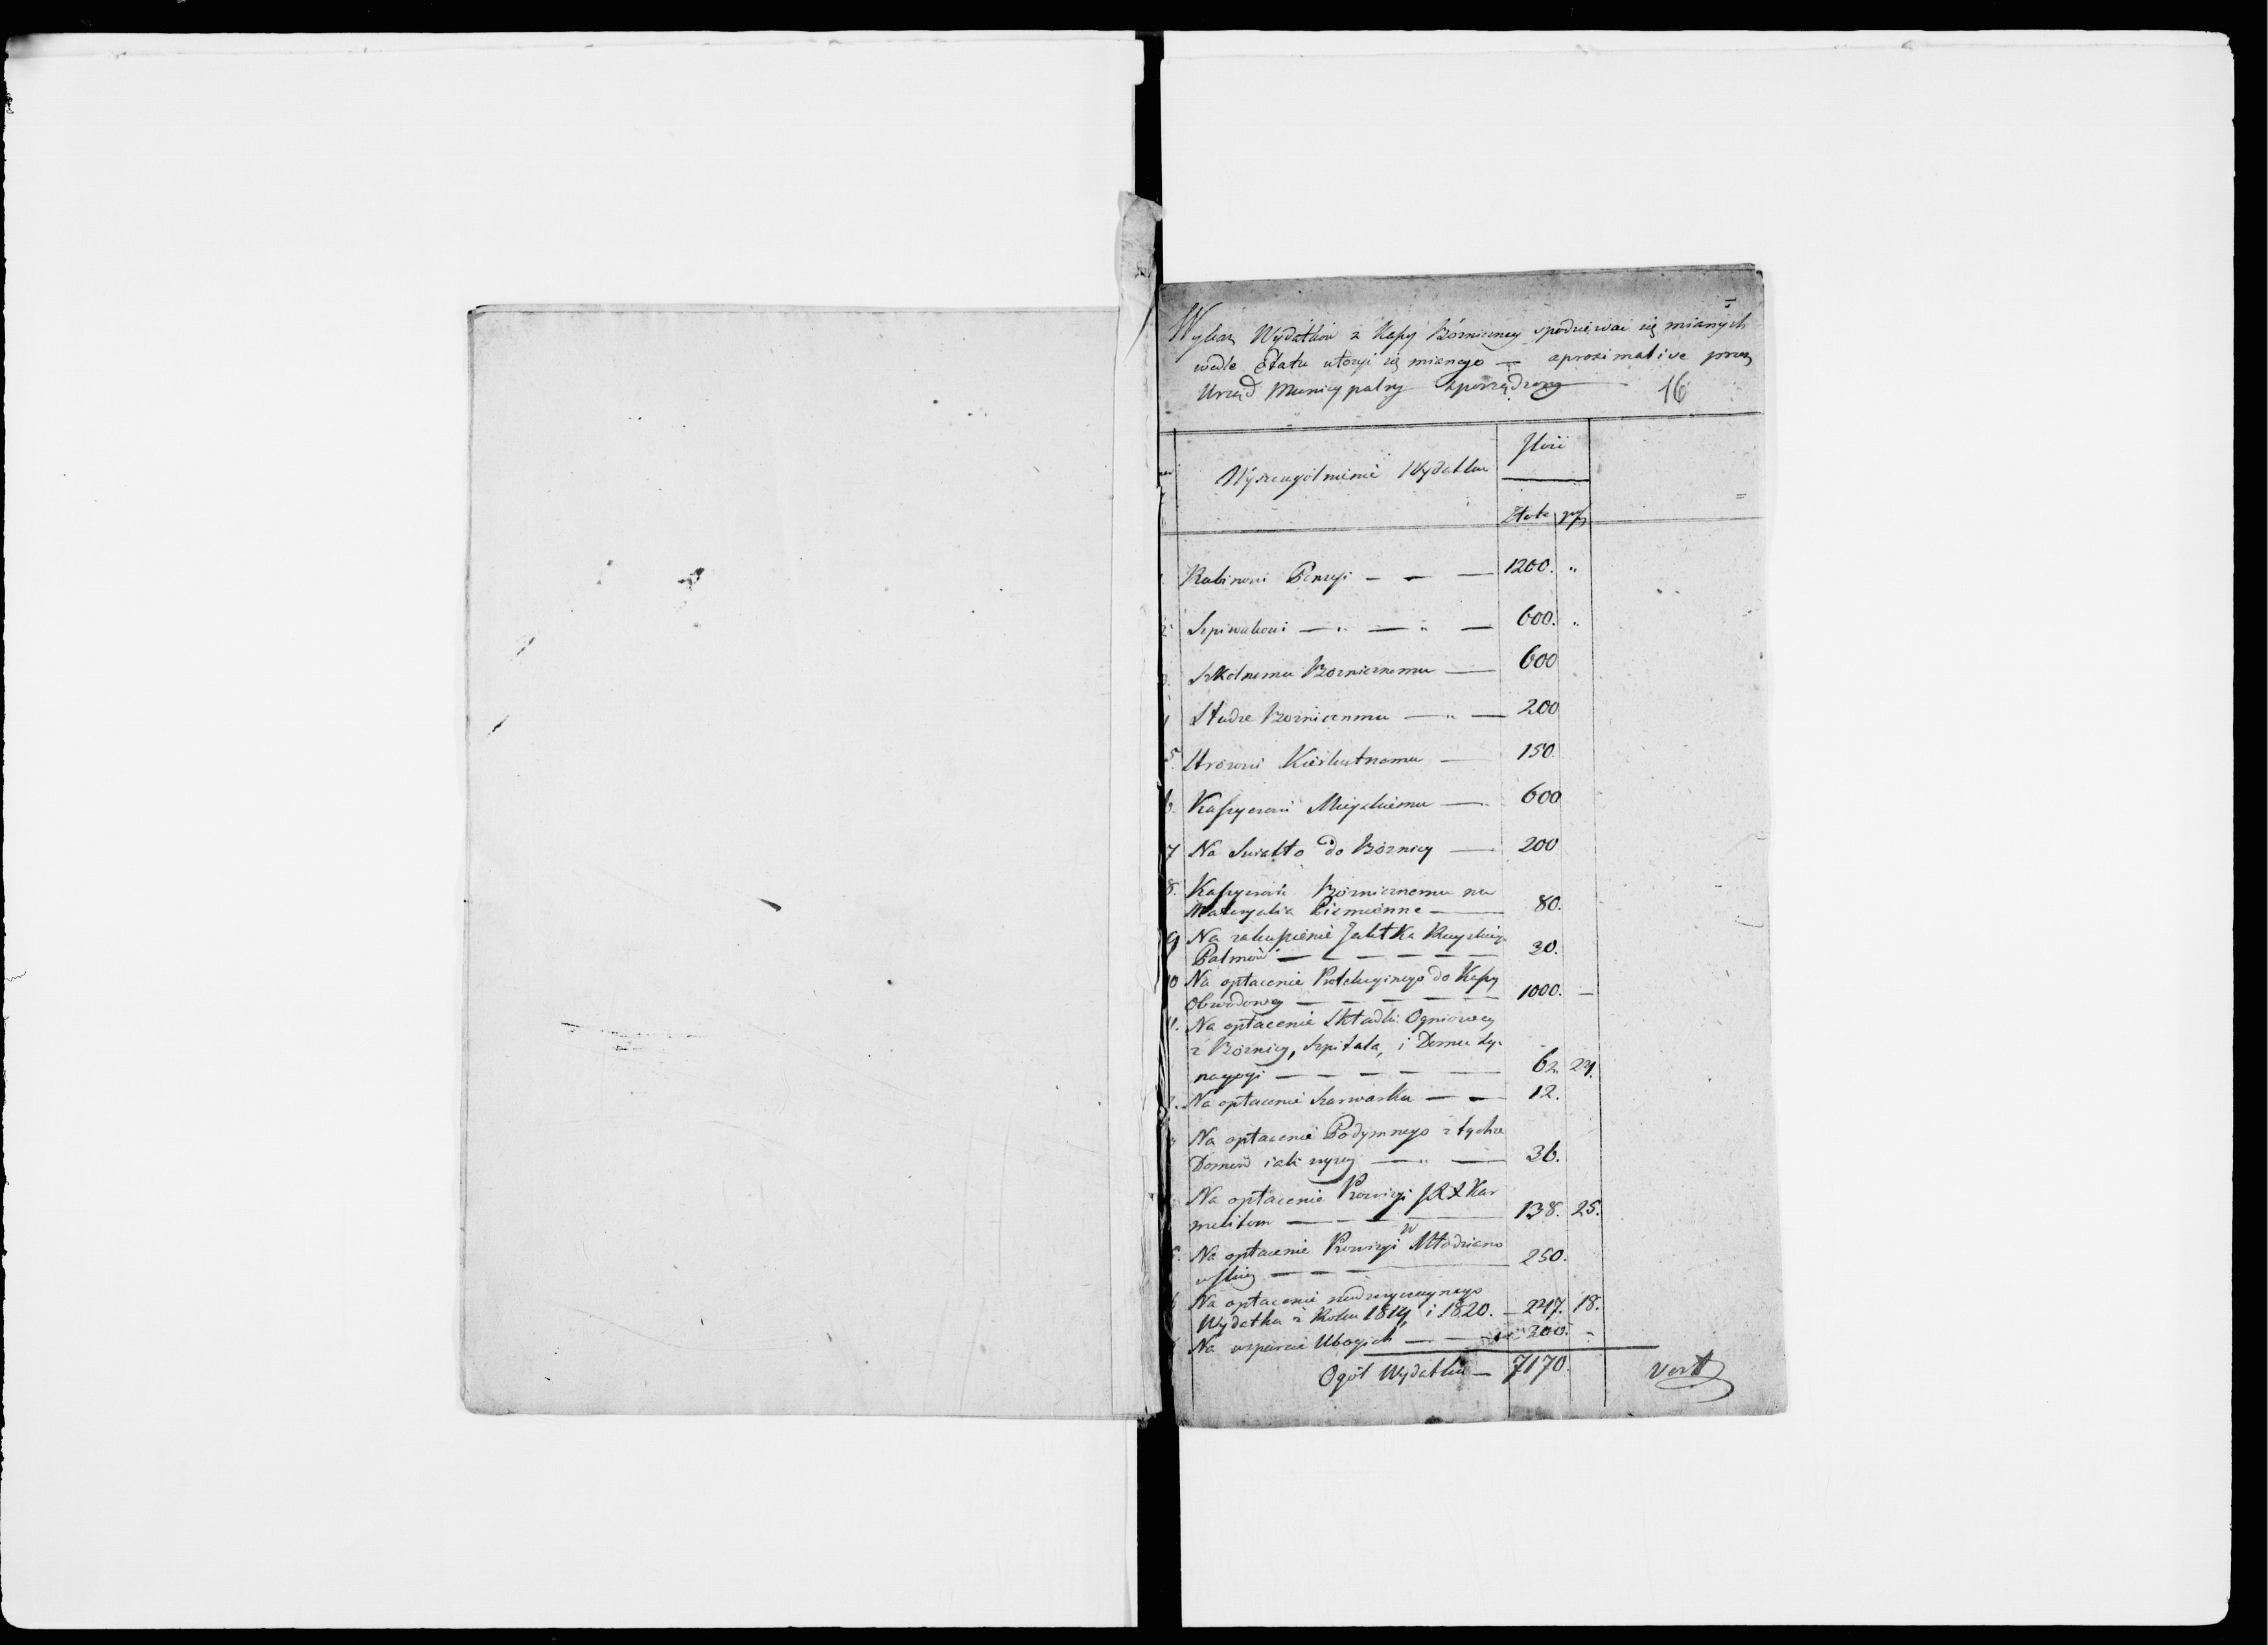 Wykaz Wydatków z Kassy Bóżniczney spodziewać się mianych
wedle Etatu utożyć się mianego — aproximative przez
Urząd Municypalny sporządzony
16
Wyszczególnienie Wydatku
Ilość
Złote | gr
Rabinowi Pensyi — — — 1200. "
2 Spiwakowi — " — " — 600. "
3. Szkolnemu Bożnicznemu — 600
4 Studze Bożnicznmu — " — 200
5. Stróżowi Kierkutnemu — 150
6. Kassyerowi Mieyskiemu — 600
7 Na Swiatło do Bóżnicy — 200
8. Kassyerowi Bóżnicznemu na
Materyalia Piśmienne — 80.
9 Na zakupienie Jabłka Rayskiego
Palmów — — — — — 30.
10 Na opłacenie Protekcyinego do Kassy
Obwodowey — — — — — 1000. —
11. Na opłacenie Składki Ogniowey
z Bóżnicy, Szpitala, i Domu Sy-
nagogi — — — — — 62. 24.
Na opłacenie Szarwarku — — 12.
Na opłacenie Podymnego z tychże
Domów iak wyzey — " — 36.
Na opłacenie Prowizyi JXX Kar
melitom — — — 138. 25.
Na opłacenie Prowizyi W Młodziano
wskiey — — — 250.
Na opłacenie nadzwyczaynego
Wydatku z Roku 1819 i 1820. — 247. 18.
Na wsparcie Ubogich — — 200. -
Ogół Wydatku — 7170.
Vert